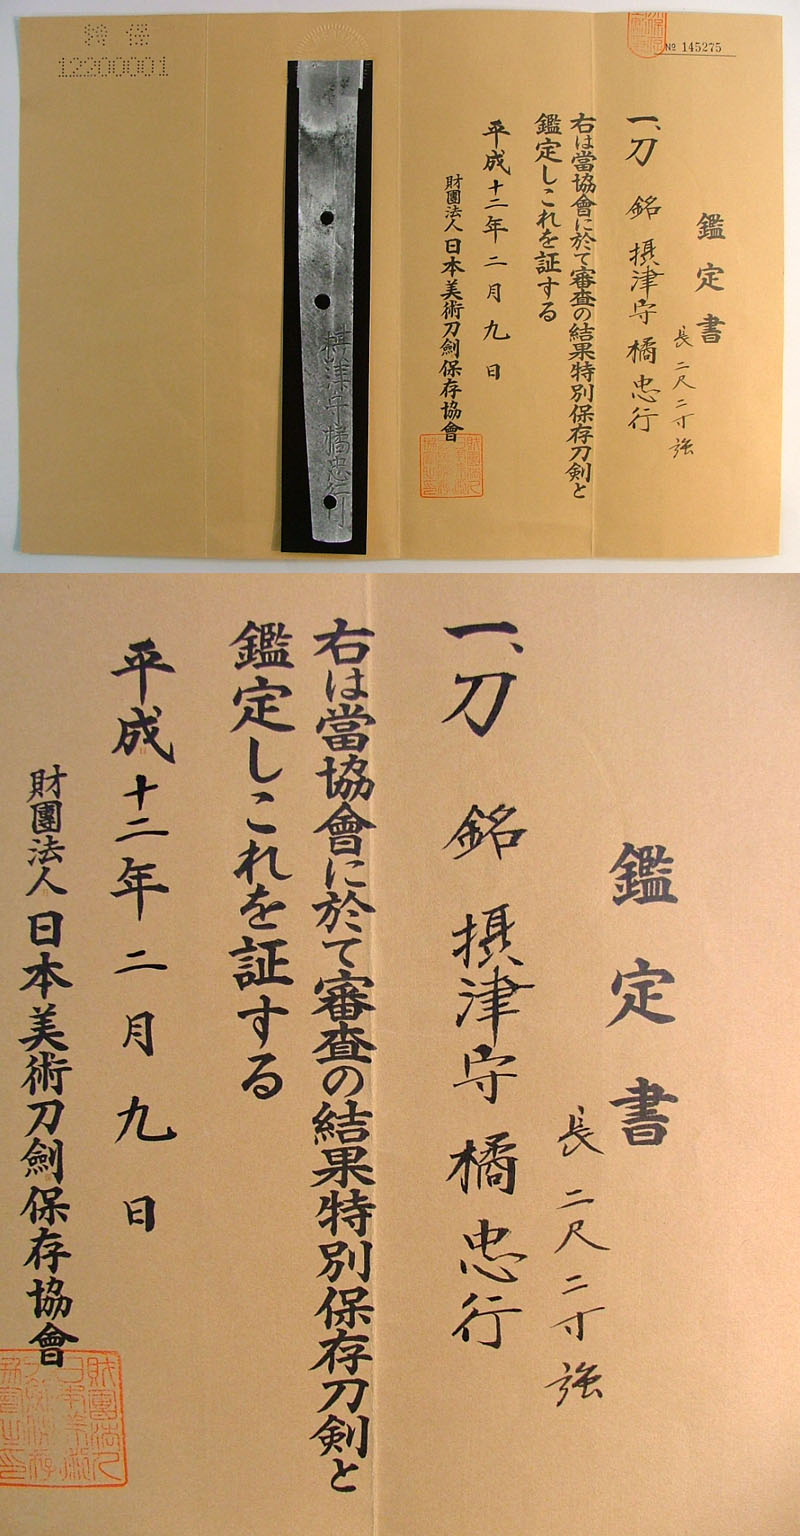 特保
12200001
№ 145275
鑑定書
長二尺二寸強
一、刀 銘 摂津守橘忠行
右は當協會に於て審査の結果特別保存刀剣と
鑑定しこれを証する
平成十二年二月九日
財團法人日本美術刀劍保存協會
摂津守橘忠行
鑑定書
長二尺二寸強
一、刀 銘 摂津守橘忠行
右は當協會に於て審査の結果特別保存刀剣と
鑑定しこれを証する
平成十二年二月九日
財團法人日本美術刀劍保存協會